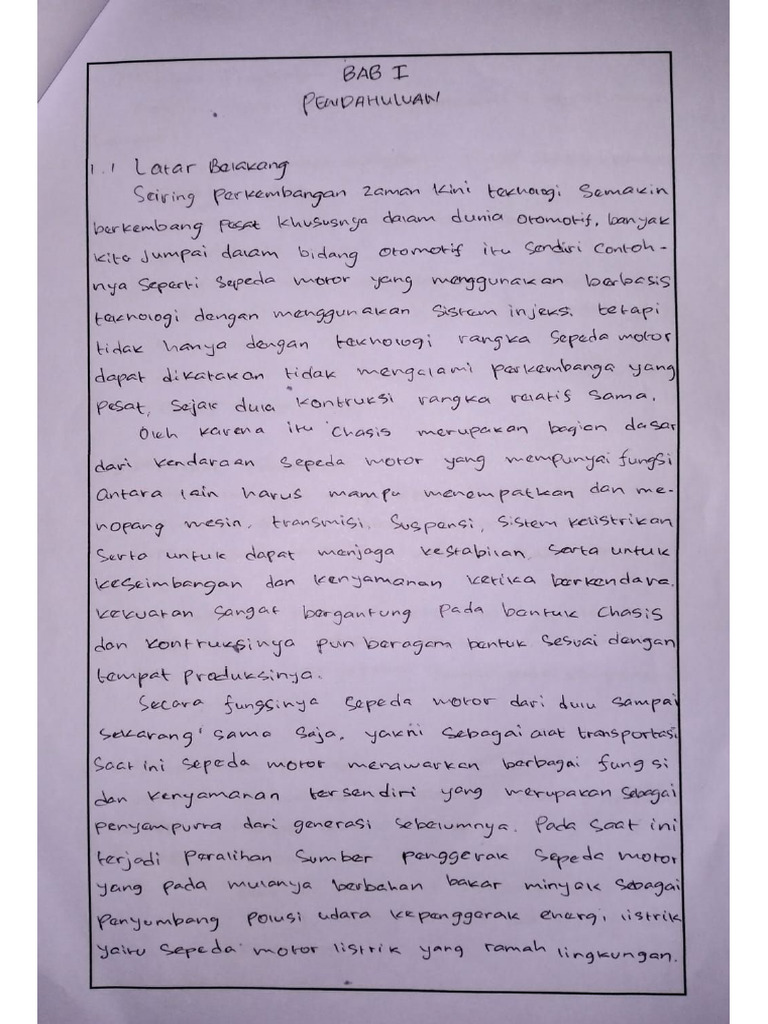 BAB I
PENDAHULUAN
1.1 Latar Belakang
Seiring perkembangan zaman kini teknologi semakin
berkembang pesat khususnya dalam dunia otomotif, banyak
kita jumpai dalam bidang otomotif itu sendiri contoh-
nya seperti sepeda motor yang menggunakan berbasis
teknologi dengan menggunakan sistem injeksi tetapi
tidak hanya dengan teknologi rangka sepeda motor
dapat dikatakan tidak mengalami perkembanga yang
pesat, sejak dula kontruksi rangka relatif sama.
Oleh karena itu chasis merupakan bagian dasar
dari kendaraan sepeda motor yang mempunyai fungsi
antara lain harus mampu menempatkan dan me-
nopang mesin, transmisi, suspensi, sistem kelistrikan
serta untuk dapat menjaga kestabilan serta untuk
keseimbangan dan kenyamanan ketika berkendara.
kekuatan sangat bergantung pada bentuk chasis
dan kontruksinya pun beragam bentuk sesuai dengan
tempat produksinya.
Secara fungsinya sepeda motor dari dulu sampai
sekarang sama saja, yakni sebagai alat transportasi
saat ini sepeda motor menawarkan berbagai fungsi
dan kenyamanan tersendiri yang merupakan sebagai
penyampurra dari generasi sebelumnya. Pada saat ini
terjadi peralihan sumber penggerak sepeda motor
yang pada mulanya berbahan bakar minyak sebagai
penyumbang polusi udara kepenggerak energi listrik
yaitu sepeda motor listrik yang ramah lingkungan.